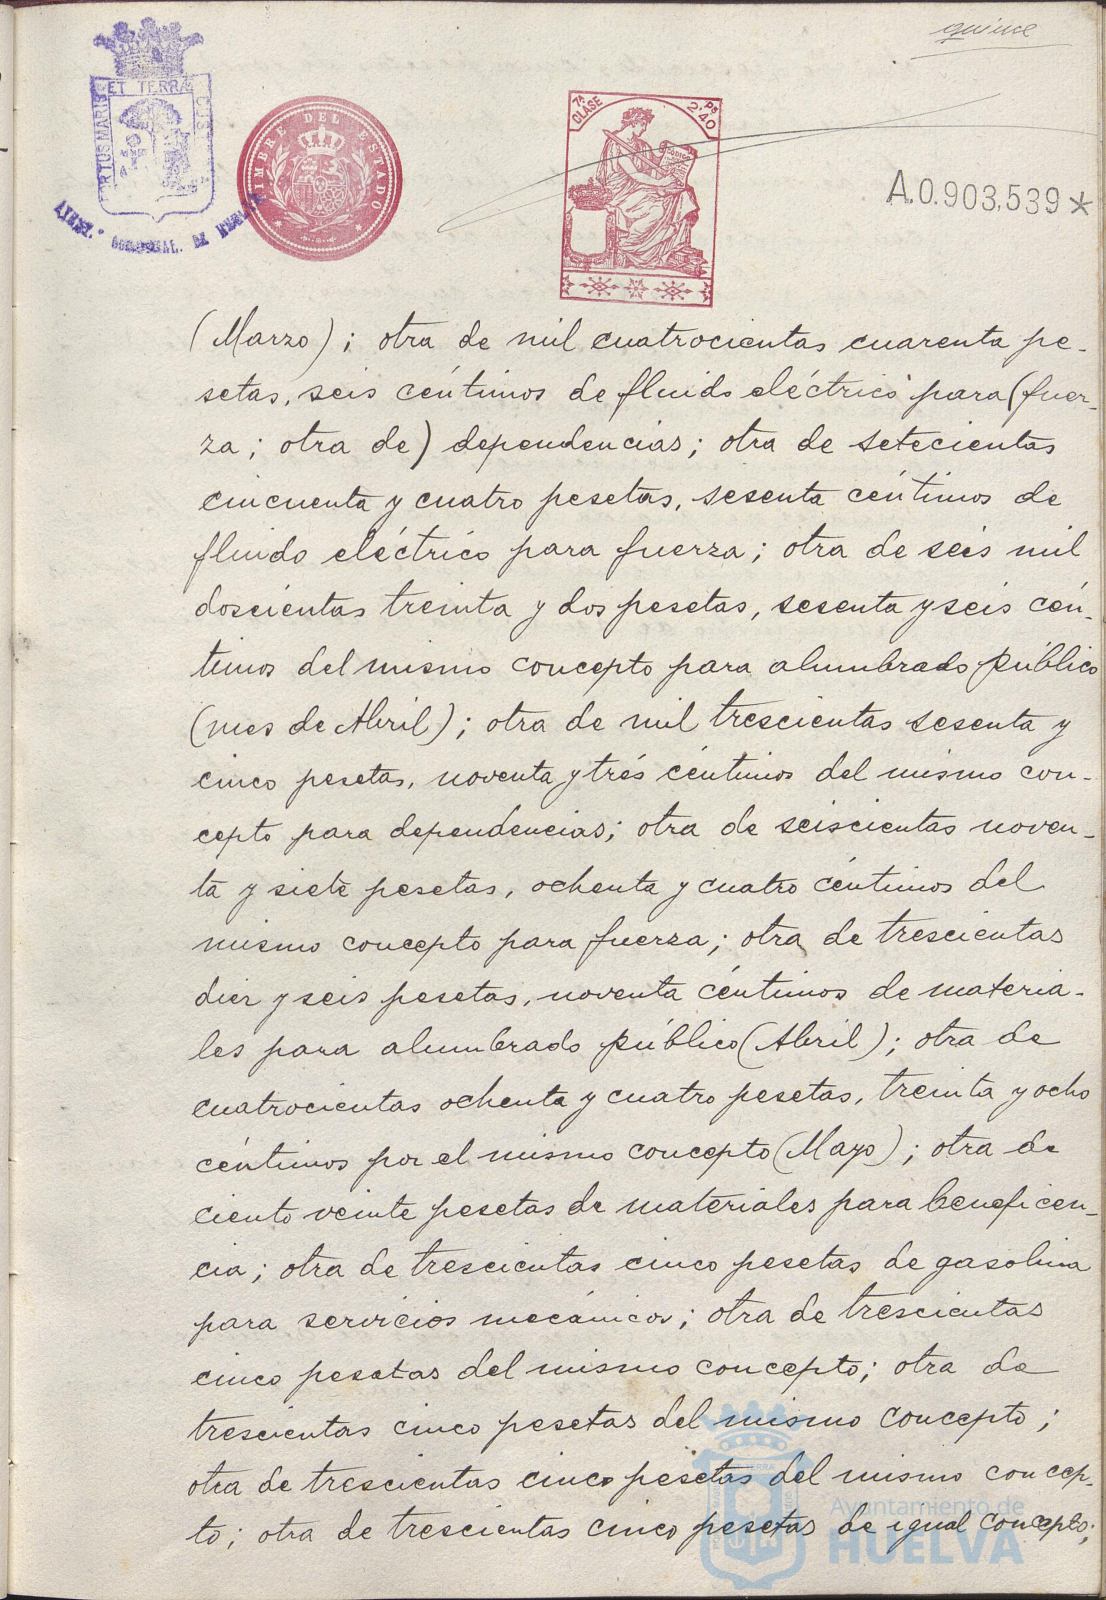 quince
PORTUS MARIS ET TERRÆ CUSTODIA
TIMBRE DEL ESTADO
7ª CLASE
2'40 Ps
A.0.903,539*
(Marzo); otra de mil cuatrocientas cuarenta pe-
setas, seis céntimos de fluido eléctrico para (fuer-
za; otra de) dependencias; otra de setecientas
cincuenta y cuatro pesetas, sesenta céntimos de
fluido eléctrico para fuerza; otra de seis mil
doscientas treinta y dos pesetas, sesenta y seis cén-
timos del mismo concepto para alumbrado público
(mes de Abril); otra de mil trescientas sesenta y
cinco pesetas, noventa y trés céntimos del mismo con-
cepto para dependencias; otra de seiscientas noven-
ta y siete pesetas, ochenta y cuatro céntimos del
mismo concepto para fuerza; otra de trescientas
diez y seis pesetas, noventa céntimos de materia-
les para alumbrado público (Abril); otra de
cuatrocientas ochenta y cuatro pesetas, treinta y ocho
céntimos por el mismo concepto (Mayo); otra de
ciento veinte pesetas de materiales para beneficen-
cia; otra de trescientas cinco pesetas de gasolina
para servicios mecánicos; otra de trescientas
cinco pesetas del mismo concepto; otra de
trescientas cinco pesetas del mismo concepto;
otra de trescientas cinco pesetas del mismo concep-
to; otra de trescientas cinco pesetas de igual concepto;
Ayuntamiento de
HUELVA